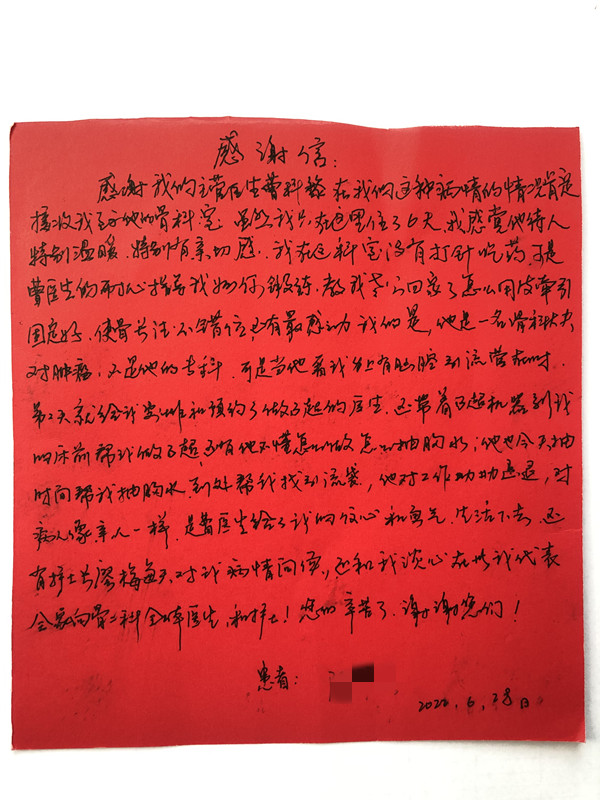 感谢信:
感谢我的主营医生曹科龄在我们这种病情的情况肯定
接收我到他的骨科室 虽然我只在这里住了6天,我感觉他待人
特别温暖,特别有亲切感.我在这科室没有打针吃药,可是
曹医生的耐心指导我如何锻练.教我老公回家了怎么用皮牵引
固定好,使骨长法不错位,还有最感动我的是,他是一名骨科大夫
对肿瘤,不是他的专科,可是当他看我身上有胸腔引流管在时.
第二天就给我安排和预约了做B超的医生.还带着B超机器到我
的床前帮我做B超,还有他不懂怎么做怎么抽胸水,他也今天抽
时间帮我抽胸水,到处帮我找引流袋,他对工作
病人像亲人一样.是曹医生给了我的信心和勇气.生活下去,还
有护士长廖梅每天对我病情问候,还和我谈心在此我代表
全家向骨二科全体医生,和护士!您们辛苦了,谢谢您们!
患者:
2022.6,28日